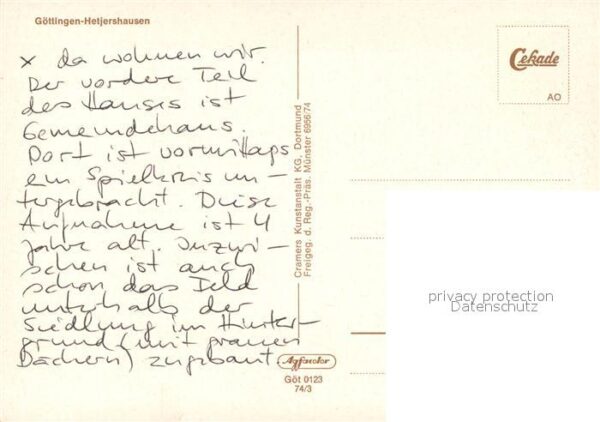 Göttingen-Hetjershausen
x da wohnen wir.
Der vordere Teil
des Hauses ist
Gemeindehaus.
Dort ist vormittags
ein Spielkreis un-
tergebracht. Diese
Aufnahme ist 4
Jahre alt. Inzwi-
schen ist auch
schon das Feld
unterhalb der
Siedlung im Hinter-
grund (mit grauen
Dächern) zugebaut.
Cramers Kunstanstalt KG, Dortmund
Freigeg. d. Reg.-Präs. Münster 6956/74
Agfacolor
Göt 0123
74/3
Cekade
AO
privacy protection
Datenschutz